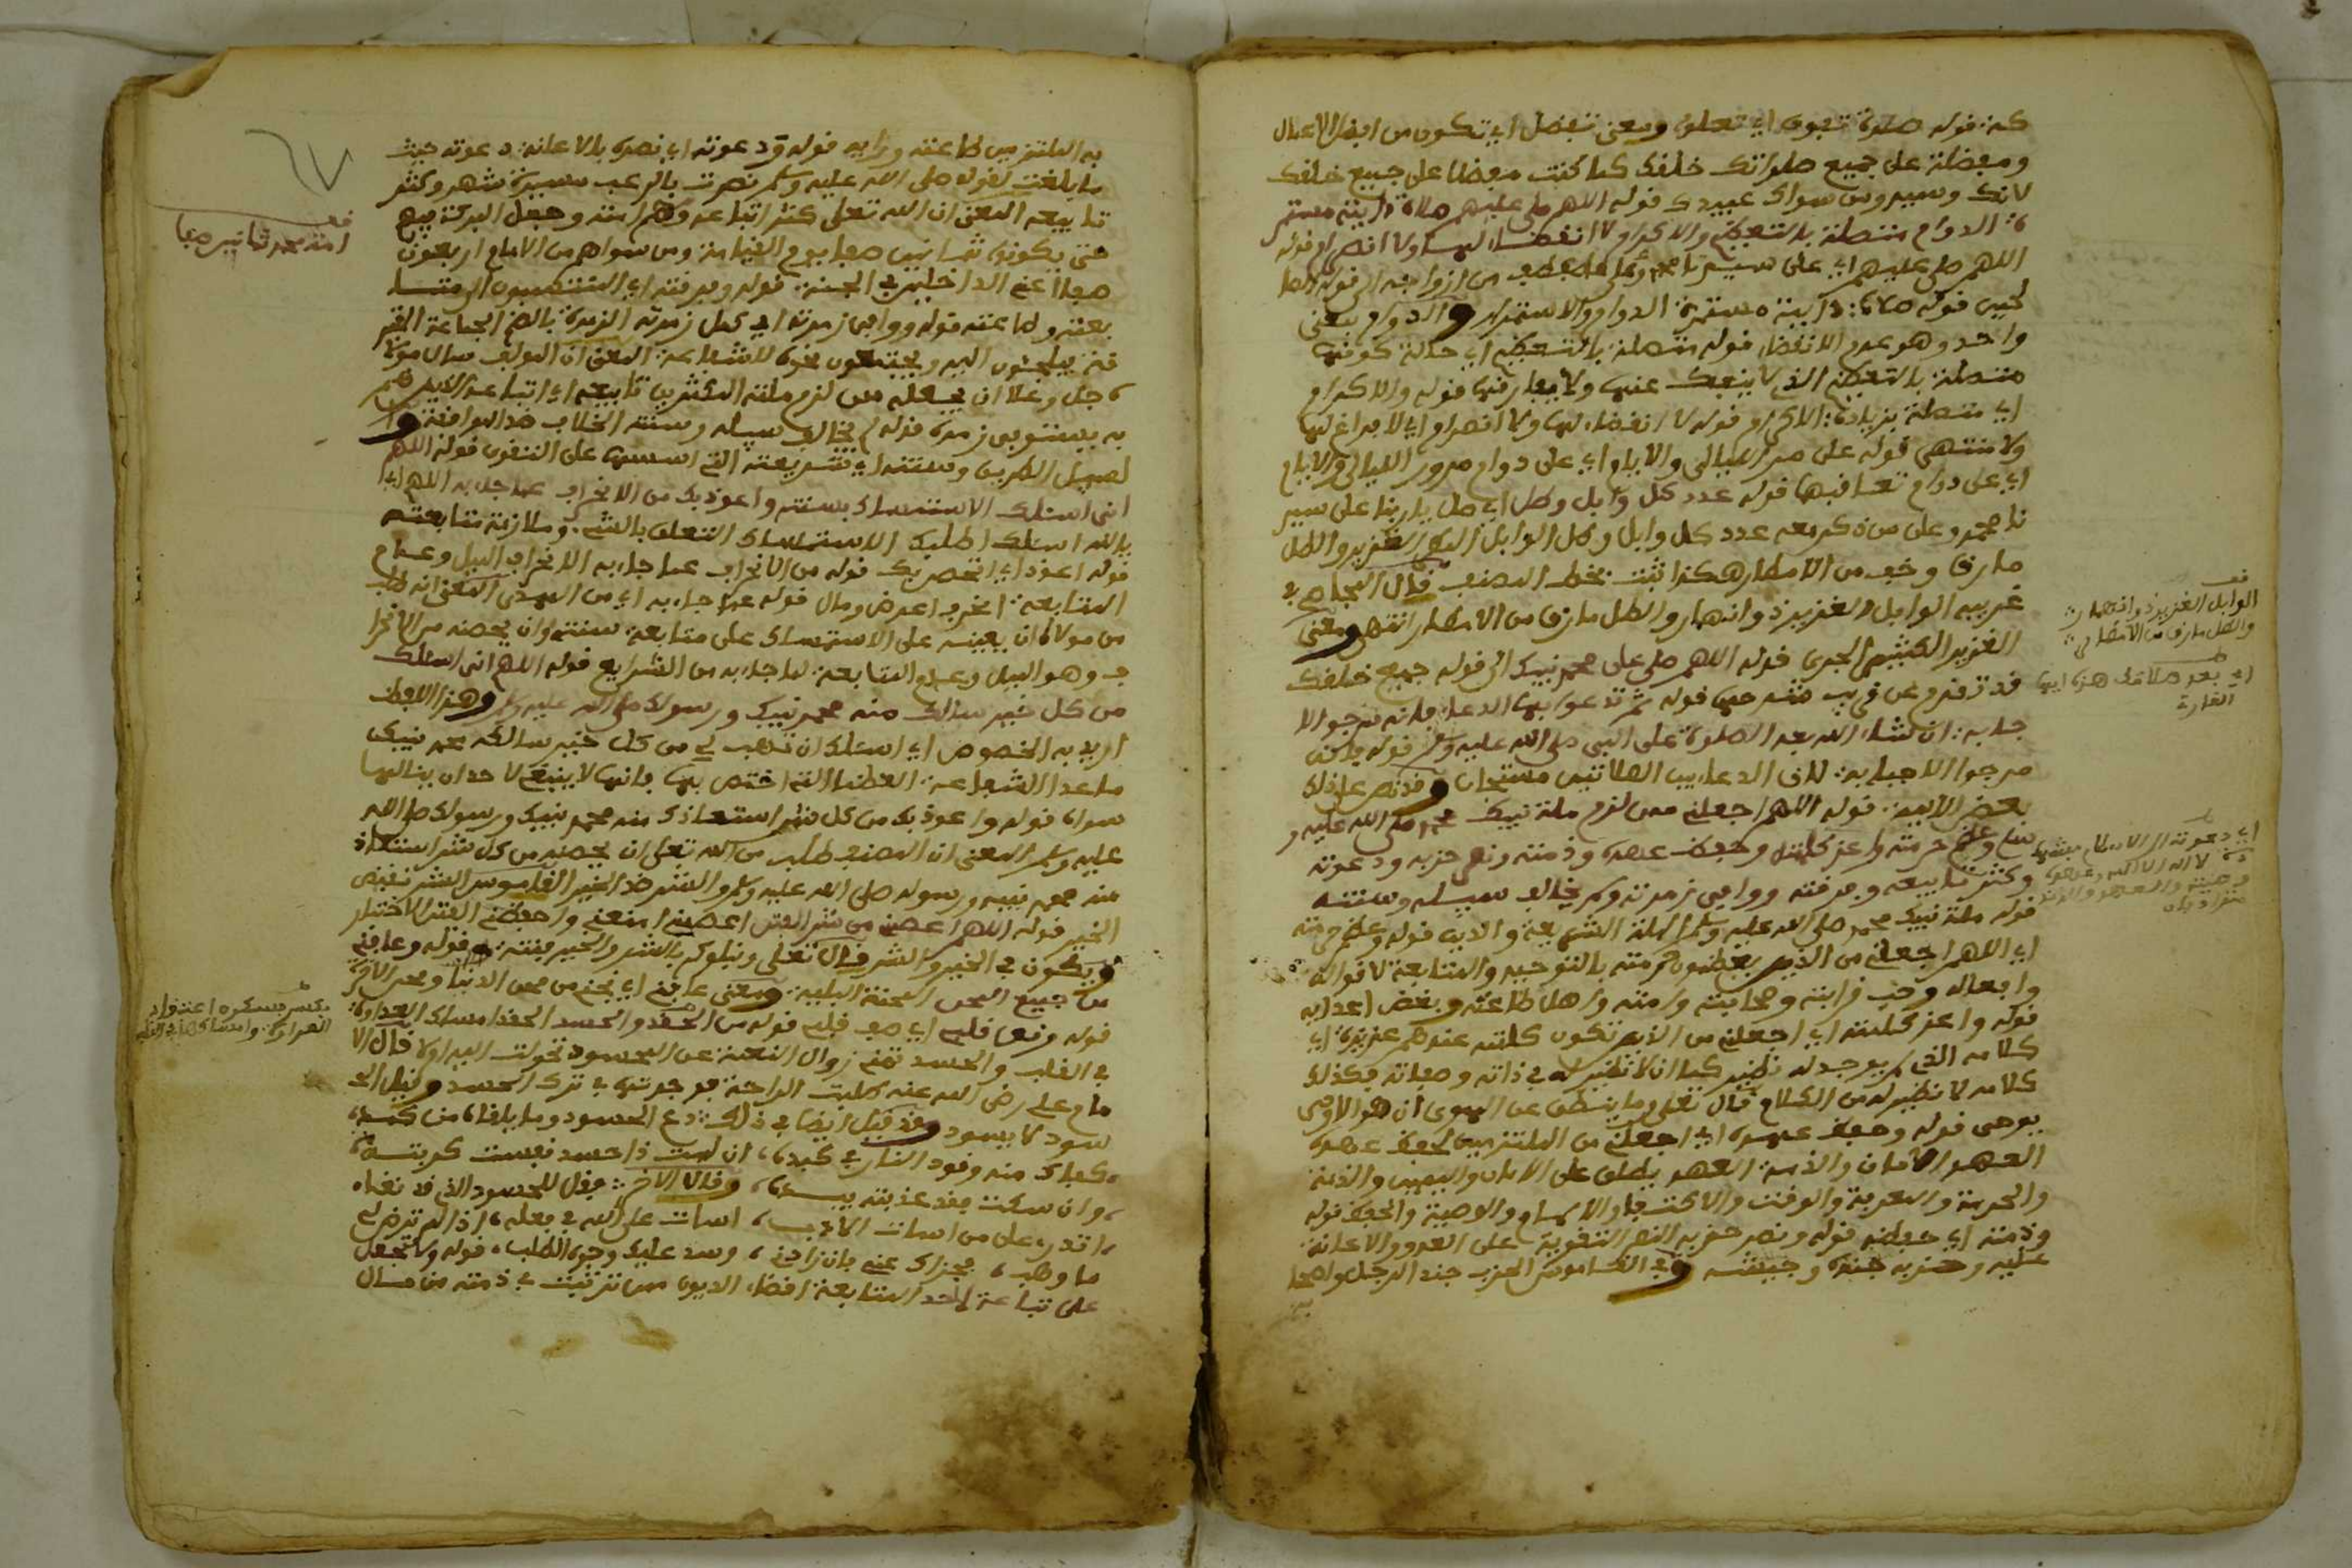 كة: قوله صلوة تفوق اي تعلو ومعنى تفضل اي تكون من افضل الاعمال
ومفضلة على جميع صلواتك خلقك كما كنت مفضلا على جميع خلقك
لانك وسيد ومن سواك عبيدك قوله اللهم صل عليهم صلاة دايمة مستمر
ة: الدوام متصلة بالتعظيم والاكرام لا انقضاء لها ولا انصرام قوله
اللهم صل عليهم اي على سيدنا محمد وعلى من ازواجه الى قوله الصا
لحين قوله صلاة: دايمة مستمرة الدوام والاستمرار والدوام بمعنى
واحد وهو عدم الانقضاء قوله متصلة بالتعظيم اي حالة كونها
متصلة بالتعظيم الذي لا ينفك عنها ولا يفارقها قوله والاكرام
اي متصلة بزيادة: الاكرام قوله لا انقضاء لها ولا انصرام اي لا فراغ لها
ولا منتهى قوله على مر الليالي والايام اي على دوام مرور الليالي والايام
اي على دوام تعاقبها قوله عدد كل وابل وطل اي صل يا ربنا على سيد
نا محمد وعلى من ذكر معه عدد كل وابل وطل الوابل المطر الغزير والطل
ما رق وخف من الامطار هكذا ثبت بخط المصنف قال الفجاجي في
غريبه الوابل الغزير ذو انهمار والطل ما رق من الامطار انتهى ومعنى
الغزير الكثير الجرى قوله اللهم صل على محمد نبيك الى قوله جميع خلقك
قد تقدم عن قريب فتدبره قوله ثم تدعو بهذا الدعاء فانه مرجو الا
جابة: ان شاء الله بعد الصلوة على النبي صلى الله عليه وسلم قوله فانه
مرجوا الاجابة: لان الدعاء بين الصلاتين مستجاب وقد نص على ذلك
بعض الايمة: قوله اللهم اجعلني ممن لزم ملة نبيك محمد صلى الله عليه و
سلم وعظم حرمته واعز كلمته وحفظ عهده وذمته ونصر حزبه ودعوته
وكثر تابعيه وفرقته ووافى زمرته ولم يخالف سبيله وسنته
قوله ملة نبيك محمد صلى الله عليه وسلم الملة الشريعة والدين قوله وعظم حرمته
اي اللهم اجعلني من الذين يعظمون حرمته بالتوحيد والمتابعة لاقواله
وافعاله وحب قرابته وصحابته وامته واهل طاعته وبغض اعدايه
قوله واعز كلمته اي اجعلني من الذين تكون كلمته عندهم عزيزة: اي
كلامه الذي لم يوجد له نظير كما ان لا نظير له في ذاته وصفاته فكذلك
كلامه لا نظير له من الكلام قال تعلى وما ينطق عن الهوى ان هو الا وحي
يوحى قوله وحفظ عهده اي اجعلني من الملتزمين لحفظ عهده
العهد الامان والذمة العهد يطلق على الامان واليمين والذمة
والحرمة والمعرفة والوقت والالتقاء والوصية والحفظ قوله
وذمته اي حفظه قوله ونصر حزبه النصر التقوية على العدو والاعانة
عليه وحزبه جنده وجيشه وفي القاموس الحزب جند الرجل واصحا
به
الوابل الغزير ذو انهمار
والطل ما رق من الامطار
اي بعد صلاتك هذه ايها
القارئ
اي دعوته الى الاسلام
لا اله الا الله
به الملتزمين طاعته ورايه قوله ودعوته اي نصره بالاعانة: دعوته حيث
ما بلغت لقوله صلى الله عليه وسلم نصرت بالرعب مسيرة شهر وكثر
تابعيه المعنى ان الله تعلى كثر اتباعه وهم امته وجعل البركة فيهم
حتى يكونوا ثمانين صفا يوم القيامة ومن سواهم من الامم اربعون
صفا اعني الداخلين في الجنة: قوله وفرقته اي المنتصبون
بعثه وطاعته قوله ووافى زمرته اي كمل زمرته الزمرة: بالضم الجماعة المتفر
قة يلجئون اليه ويجتمعون نحوه للشفاعة: المعنى ان المؤلف سال مولا
ه جل وعلا ان يجعله ممن لزم ملته المكثرين تابعيه اي اتباعه الذين هم
به يستوفي زمرته قوله لم يخالف سبيله وسنته الخلاف ضد الموافقة وا
لسبيل الطريق وسنته اي شريعته التي اسسها على التقوى قوله اللهم
اني اسئلك الاستمساك بسنته واعوذ بك من الانحراف عما جاء به اللهم اي
يا الله اسئلك اطلبك الاستمساك التعلق بالشيء وملازمة متابعته
قوله اعوذ اي اتحصن بك قوله من الانحراف عما جاء به الانحراف الميل وعدم
المتابعة: انحرف اعرض ومال قوله عما جاء به اي من الهدى المعنى انه طلب
من مولاه ان يعينه على الاستمساك على متابعة: سنته وان يحصنه من الانحرا
ف وهو الميل وعدم المتابعة: لما جاء به من الشرايع قوله اللهم اني اسئلك
من كل خير سالك منه محمد نبيك ورسولك صلى الله عليه وسلم وهذا اللفظ
اريد به الخصوص اي اسئلك ان تهب لي من كل خير سالكه محمد نبيك
ما عدا الشفاعة: العظمى التي اختص بها فانها لا ينبغي لاحد ان ينالها
سواه قوله واعوذ بك من كل شر استعاذك منه محمد نبيك ورسولك صلى الله
عليه وسلم المعنى ان المصنف طلب من الله تعلى ان يحصنه من كل شر استعاذ
منه محمد نبيه ورسوله صلى الله عليه وسلم والشر ضد الخير القاموس الشر نقيض
الخير قوله اللهم اعصمني من شر الفتن اعصمني امنعني واحفظني الفتن الاختبار
ويكون في الخير والشر قال تعلى ونبلوكم بالشر والخير فتنة: قوله وعافني
من جميع المحن المحنة البلية: ومعنى عافني اي نجني من محن الدنيا ومحن الاخر
قوله ونقا قلبي اي صف قلبي قوله من الحقد والحسد الحقد امساك العداوة:
في القلب والحسد تمني زوال النعمة: عن المحسود تحولت اليه او لا قال الا
مام علي رضي الله عنه طلبت الراحة فوجدتها في ترك الحسد وقيل الح
سود لا يسود وقد قيل ايضا في ذلك: دع الحسود وما يلقاه من كمده،
،كفاك منه وقود النار في كبده، ان لمت ذا حسد نفست كربته،
،وان سكت فقد عذبته بيده، وقال الاخر: فقل للمحسود الذي
،اتدري على من اسات الادب، اسات على الله في فعله، اذ الم ترض لي
ما وهب، فجزاك عني بان زادني، وسد عليك وجوه الطلب، قوله ولا تجعل
على تباعة لاحد المتابعة اقضاء الديون ممن ترتبت في ذمته من مال
قف
امة محمد ثمانين صفا